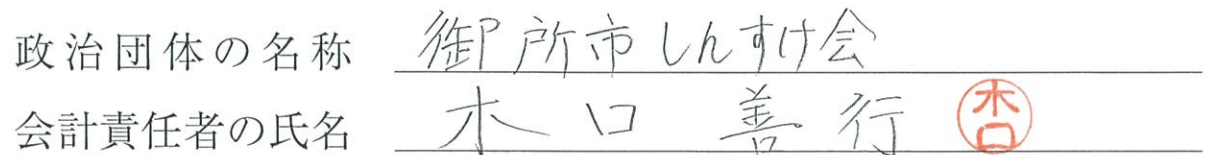 政治団体の名称 御所市しんすけ会
会計責任者の氏名 木口 善行 木口